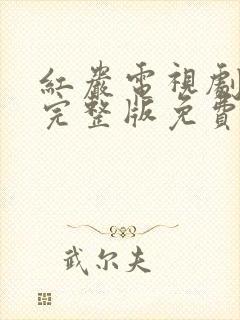 紅巖電視劇
完整版免費
武尔夫